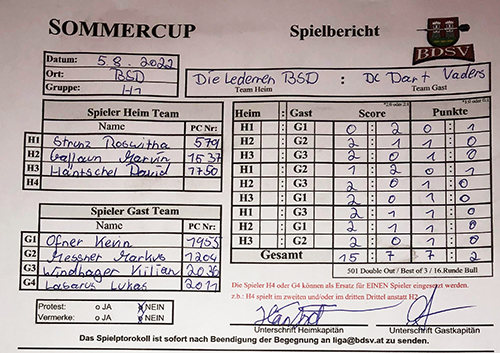 SOMMERCUP Spielbericht
BDSV
Datum: 5.8.2022
Ort: BSD
Gruppe: H1
Die Ledernen BSD : DC Dart Vaders
Team Heim Team Gast
Spieler Heim Team
Name PC Nr:
H1 Strunz Roswitha 579
H2 Marvin 1537
H3 Häntschel David 1750
H4
Spieler Gast Team
Name PC Nr:
G1 Ofner Kevin 1955
G2 Messner Markus 1204
G3 Windhager Kilian 2036
G4 Lukas 2011
Protest: o JA NEIN
Vermerke: o JA NEIN
Heim : Gast Score Punkte
H1 : G1 0 : 2 0 : 1
H2 : G2 2 : 1 1 : 0
H3 : G3 2 : 0 1 : 0
H1 : G2 1 : 2 0 : 1
H2 : G3 2 : 0 1 : 0
H3 : G1 2 : 0 1 : 0
H1 : G3 2 : 1 1 : 0
H3 : G2 2 : 1 1 : 0
H2 : G1 2 : 0 1 : 0
Gesamt 15 : 7 7 : 2
501 Double Out / Best of 3 / 16.Runde Bull
Die Spieler H4 oder G4 können als Ersatz für EINEN Spieler eingesetzt werden.
z.b.: H4 spielt im zweiten und/oder im dritten Drittel anstatt H2
Unterschrift Heimkapitän Unterschrift Gastkapitän
Das Spielptorokoll ist sofort nach Beendigung der Begegnung an liga@bdsv.at zu senden.